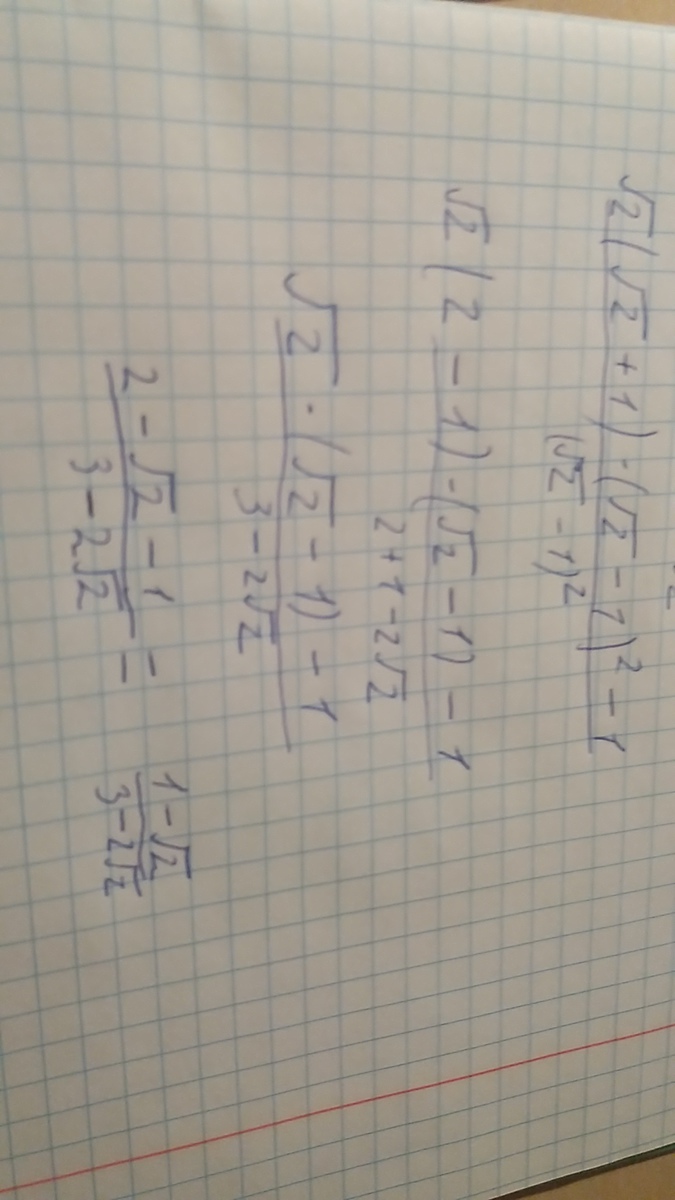 √2(√2+1)·(√2-1)²-1
(√2-1)²
√2(2-1)·(√2-1)-1
2+1-2√2
√2·(√2-1)-1
3-2√2
2-√2-1 = 1-√2
3-2√2 3-2√2